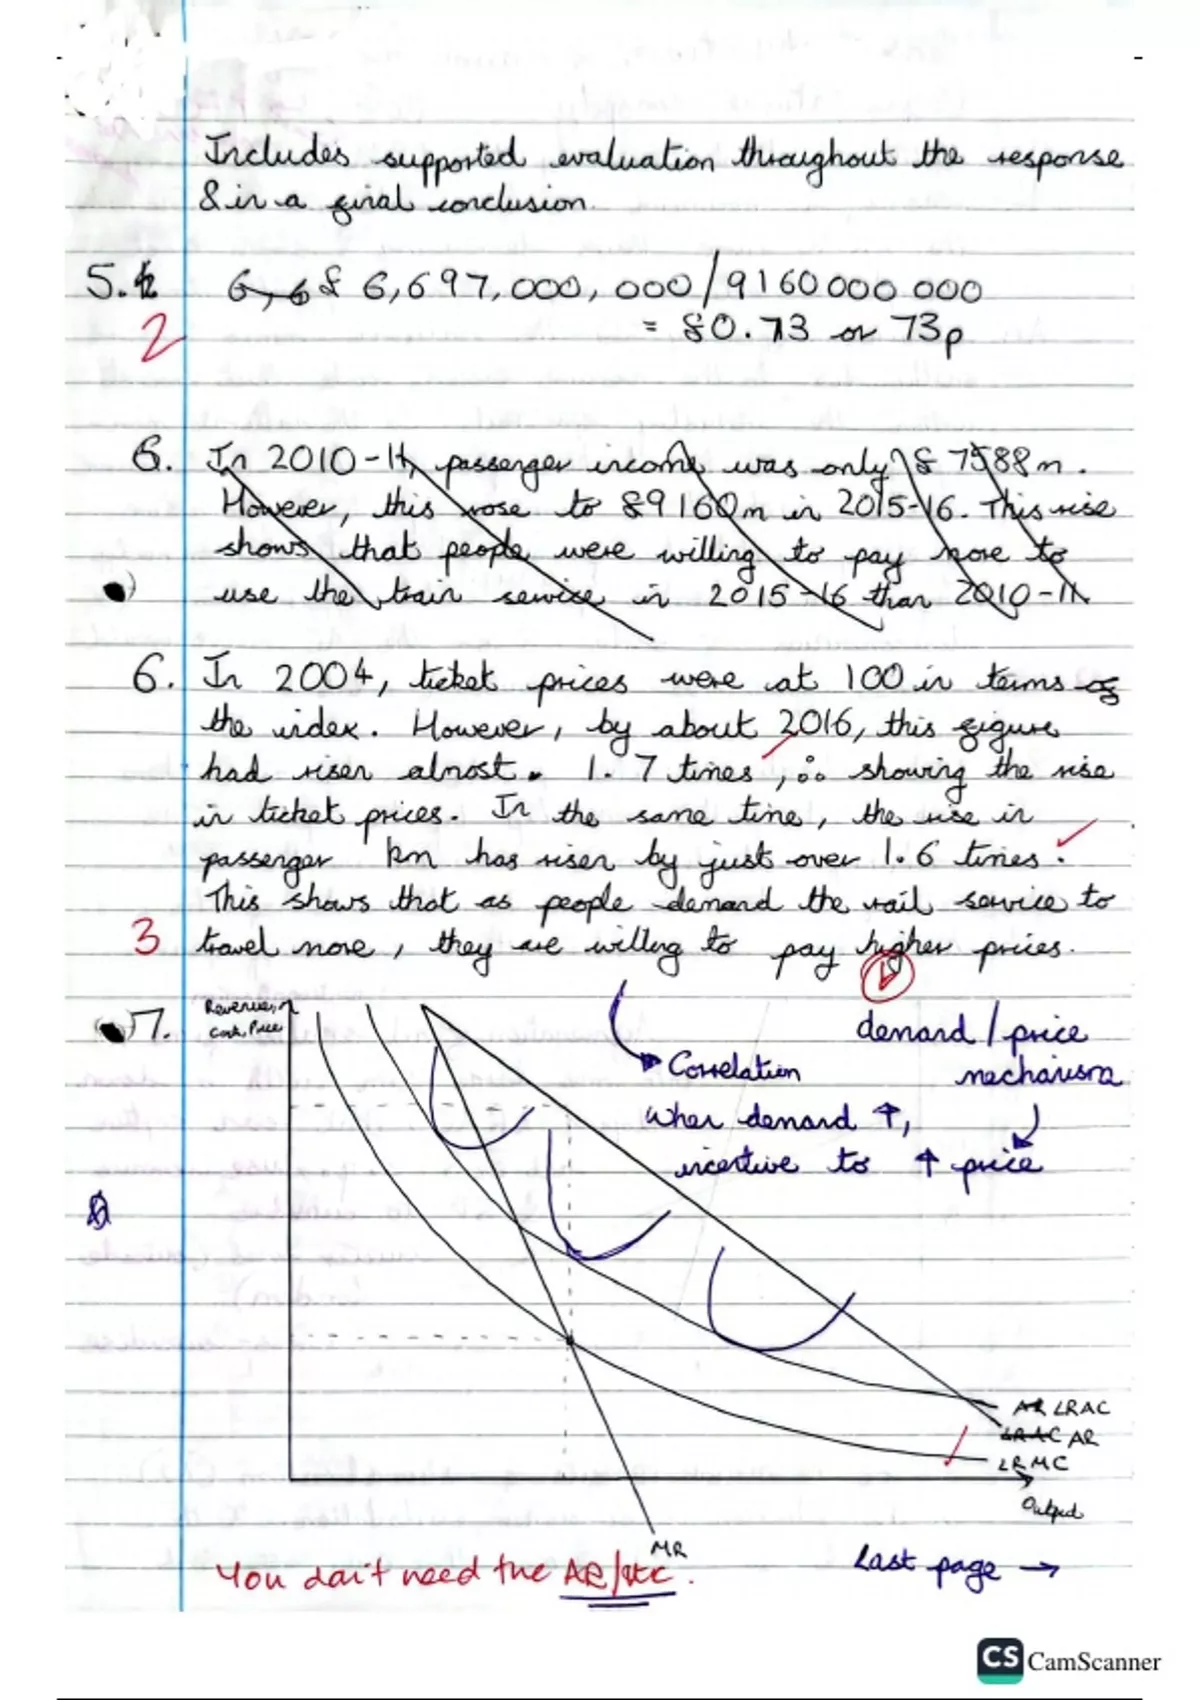 Includes supported evaluation throughout the response
& in a final conclusion.
5. £ 6,697,000,000/9160000000
2
= £0.73 or 73p
6. In 2010-11, passenger income was only £7588m.
However, this rose to £9160m in 2015-16. This rise
shows that people were willing to pay more to
use the train service in 2015-16 than 2010-11.
6. In 2004, ticket prices were at 100 in terms of
the index. However, by about 2016, this figure
had risen almost 1.7 times, ∴ showing the rise
in ticket prices. In the same time, the rise in
passenger km has risen by just over 1.6 times.
This shows that as people demand the rail service to
3 travel more, they are willing to pay higher prices.
7. Revenue,
Cost, Price
demand / price
mechanism
Correlation
When demand ↑,
incentive to ↑ price
LRAC
LRAC AR
LRMC
Output
MR
You don't need the AR/
Last page →
CS CamScanner